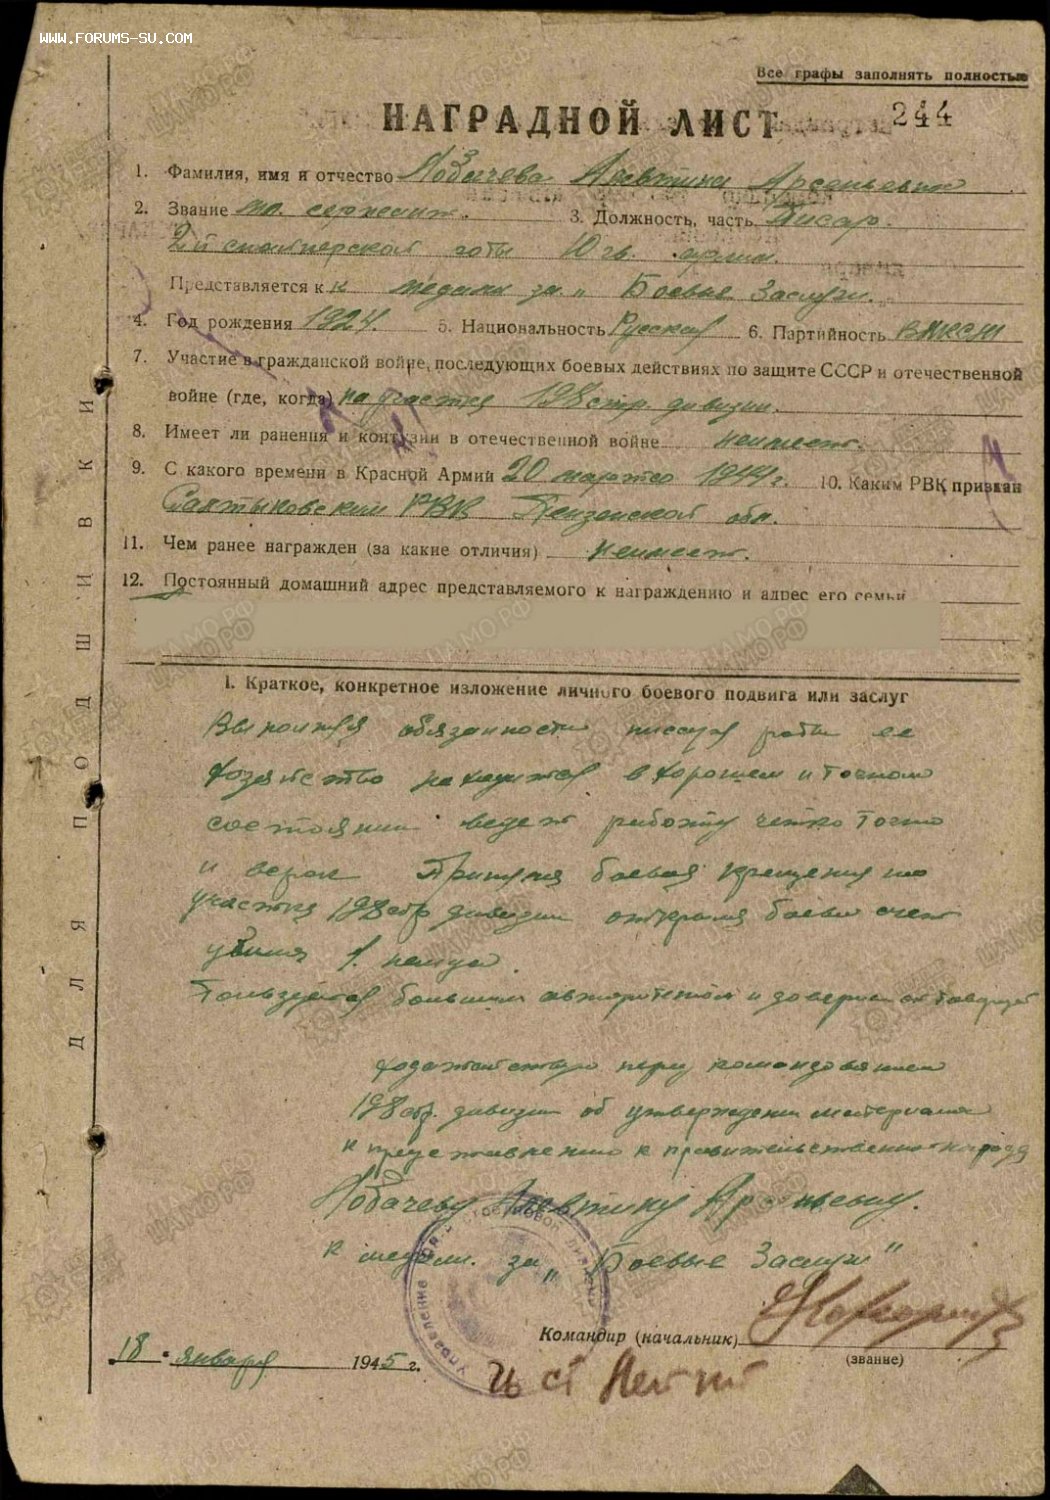 WWW.FORUMS-SU.COM
Все графы заполнять полностью
НАГРАДНОЙ ЛИСТ 244
1. Фамилия, имя и отчество Лобачева Алевтина Арсеньевна
2. Звание мл. сержант. 3. Должность, часть Писарь.
2й снайперской роты 10 гв. армии.
Представляется к к медали за „Боевые Заслуги.
4. Год рождения 1924. 5. Национальность Русская 6. Партийность ВЛКСМ
7. Участие в гражданской войне, последующих боевых действиях по защите СССР и отечественной
войне (где, когда) на участке 198 стр. дивизии.
8. Имеет ли ранения и контузии в отечественной войне неимеет.
9. С какого времени в Красной Армий 20 марта 1944 г. 10. Каким РВК призван
Салтыковским РВК Пензенской обл.
11. Чем ранее награжден (за какие отличия) неимеет.
12. Постоянный домашний адрес представляемого к награждению и адрес его семьи
I. Краткое, конкретное изложение личного боевого подвига или заслуг
обязанности писаря роты ее
хозяйство находится в хорошем и точном
состоянии ведет работу четко точно
и верно
участке 198 стр дивизии боевы счет
1. немца.
Пользуется большим авторитетом и
Ходатайствую перед командованием
198 стр. дивизии об утверждении материала
и представлению к правительственной
Лобачеву Алевтину Арсеньевну.
к медали. за „Боевые Заслуги"
Управление стрелковой дивизии
Командир (начальник)
(звание)
18 " января 1945 г.
ст Лейт
ДЛЯ ПОДШИВКИ
ЦАМО РФ